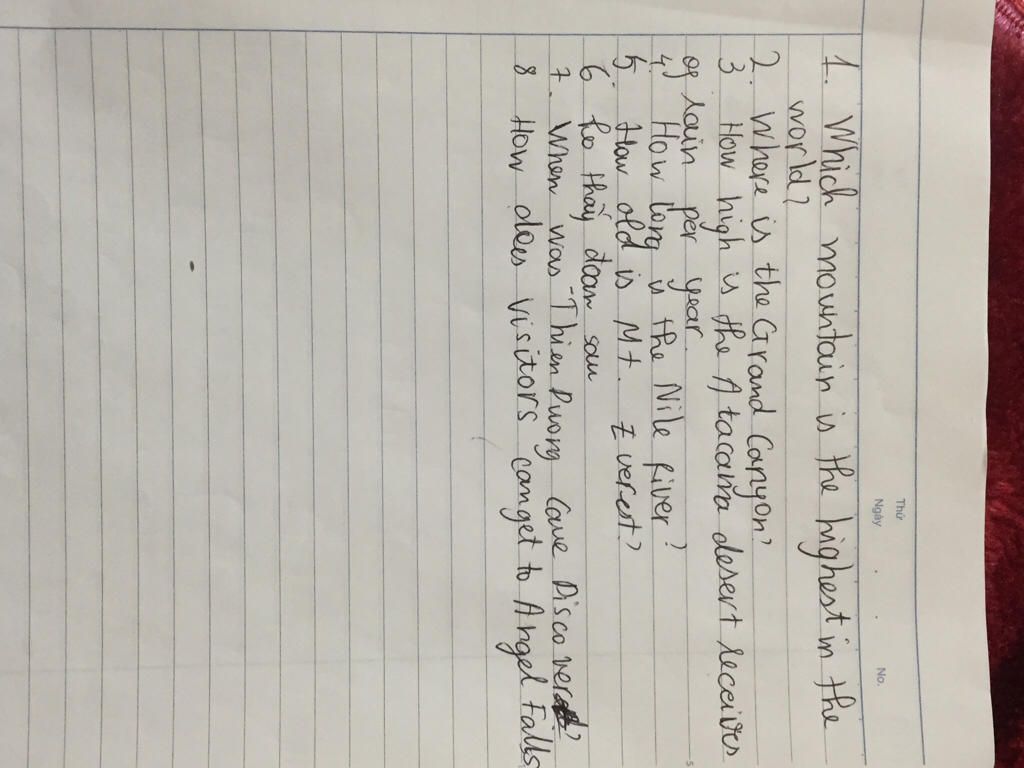 Thứ
Ngày . . No.
1. Which mountain is the highest in the
world?
2. Where is the Grand Canyon?
3 How high is the Atacama desert receives
og rain per year.
4. How long is the Nile River?
5. How old is Mt. Everest?
6.
7. When was Thien Duong Cave Discovered?
8 How does visitors canget to Angel Falls
5